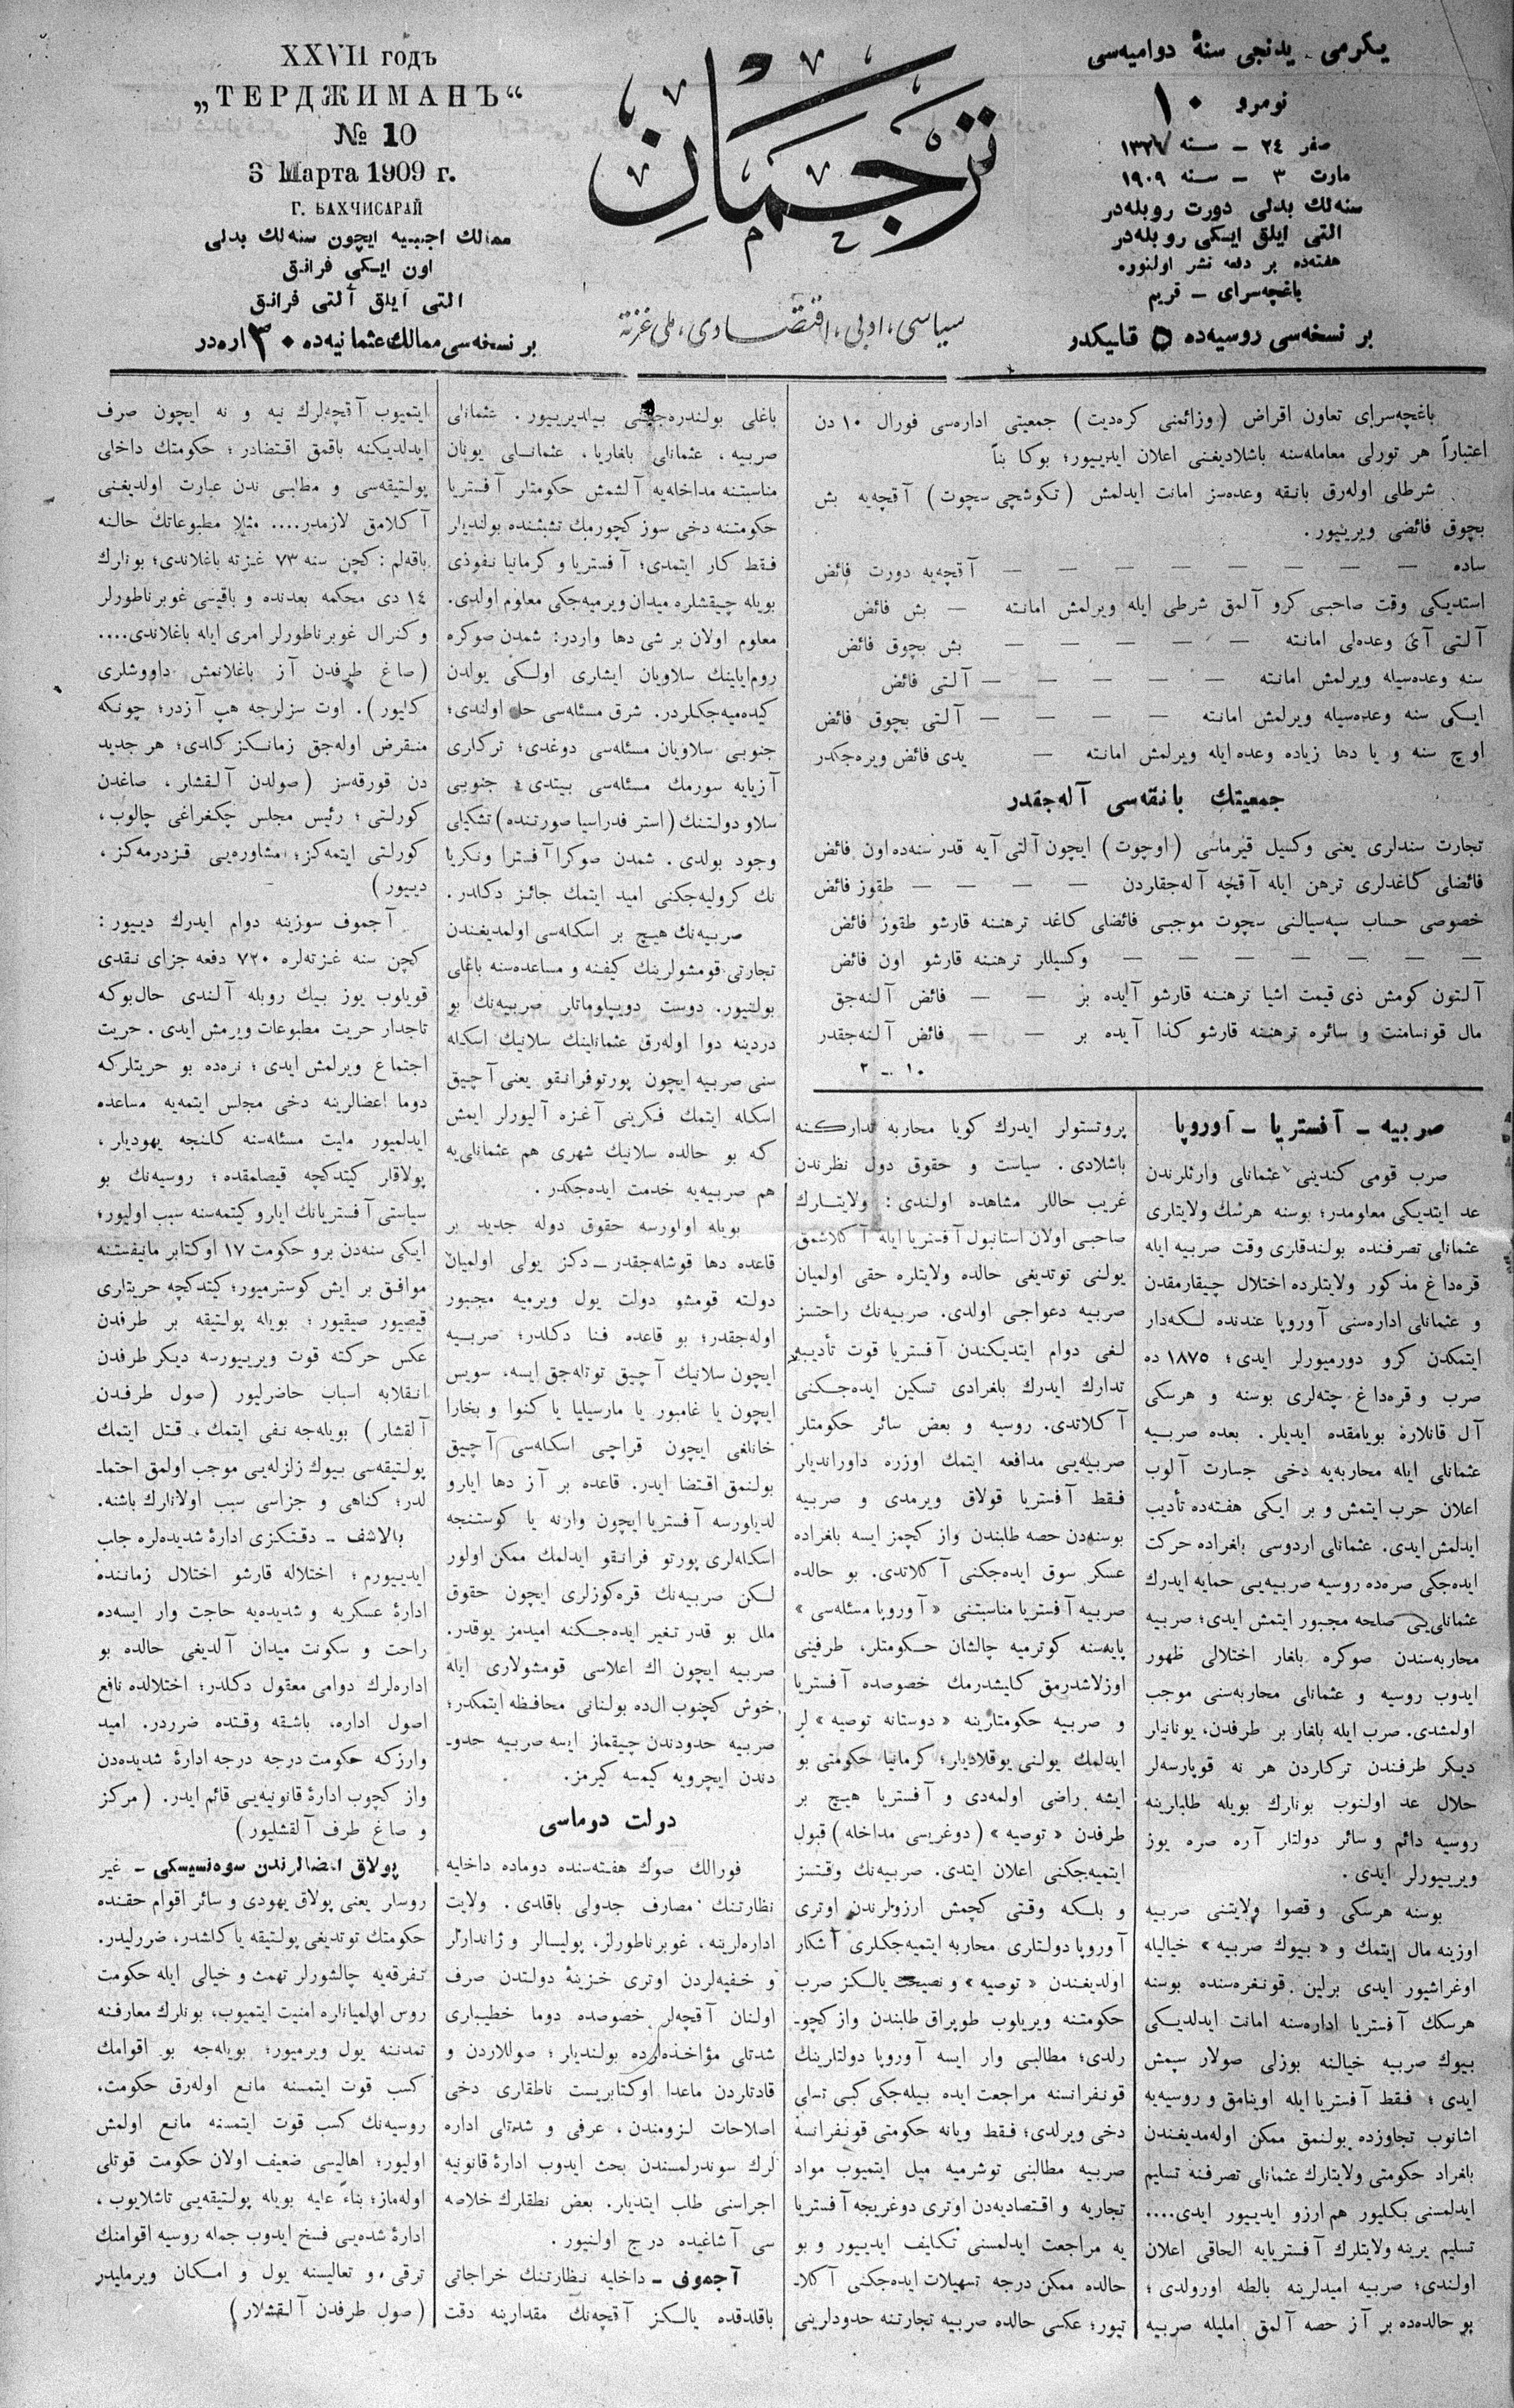 XXVII годъ
„ТЕРДЖИМАНЪ“
№ 10
3 Марта 1909 г.
Г. БАХЧИСАРАЙ
ممالك اجنبیه ایچون سنه‌لك بدلی
اون ایكی فرانق
التی آیلق آلتی فرانق
بر نسخه‌سی ممالك عثمانیه‌ده ٣٠ اره‌در
ترجمان
سیاسی، ادبی، اقتصادی، ملی غزته
یكرمی یدنجی سنهٔ دوامیه‌سی
نومرو ١٠
صفر ٢٤ – سنه ١٣٢٧
مارت ٣ – سنه ١٩٠٩
سنه‌لك بدلی دورت روبله‌در
التی ایلق ایكی روبله‌در
هفته‌ده بر دفعه نشر اولنور
باغچه‌سرای – قریم
بر نسخه‌سی روسیه‌ده ٥ قاپیكدر
باغچه‌سرای تعاون اقراض (وزائمنی كره‌دیت) جمعیتی اداره‌سی فورال ١٠ دن
اعتباراً هر تورلی معامله‌سنه باشلادیغنی اعلان ایدییور؛ بوكا بناً
شرطلی اوله‌رق بانقه وعده‌سز امانت ایدلمش (تكوشچی سچوت) آقچه‌یه بش
بچوق فائضی ویرییور.
ساده — — — — — — — — آقچه‌یه دورت فائض
استدیكی وقت صاحبی كرو آلمق شرطی ایله ویرلمش امانته — بش فائض
آلتی آی وعده‌لی امانته — — — — — بش بچوق فائض
سنه وعده‌سیله ویرلمش امانته — — — — — آلتی فائض
ایكی سنه وعده‌سیله ویرلمش امانته — — — — آلتی بچوق فائض
اوچ سنه و یا دها زیاده وعده ایله ویرلمش امانته — یدی فائض ویره‌جكدر
جمعیتك بانقه‌سی آله‌جقدر
تجارت سندلری یعنی وكسیل قیرماسی (اوچوت) ایچون آلتی آیه قدر سنه‌ده اون فائض
فائضلی كاغدلری ترهن ایله آقچه آله‌جقاردن — — — — طقوز فائض
خصوصی حساب سپه‌سیالنی سچوت موجبی فائضلی كاغد ترهننه قارشو طقوز فائض
— — — — — — — وكسیللر ترهننه قارشو اون فائض
آلتون كومش ذی قیمت اشیا ترهننه قارشو آیده بر — — فائض آلنه‌جق
مال قونسامنت و سائره ترهننه قارشو كذا آیده بر — — فائض آلنه‌جقدر
١٠ – ٢
صربیه – آفستریا – اوروپا
صرب قومی كندینی عثمانلی وارثلرندن
عد ایتدیكی معلومدر؛ بوسنه هرسك ولایتلری
عثمانلی تصرفنده بولندقلری وقت صربیه ایله
قره‌داغ مذكور ولایتلرده اختلال چیقارمقدن
و عثمانلی اداره‌سنی آوروپا عندنده لكه‌دار
ایتمكدن كرو دورمیورلر ایدی؛ ١٨٧٥ ده
صرب و قره‌داغ چته‌لری بوسنه و هرسكی
آل قانلاره بویامقده ایدیلر. بعده صربیه
عثمانلی ایله محاربه‌یه دخی جسارت آلوب
اعلان حرب ایتمش و بر ایكی هفته‌ده تأدیب
ایدلمش ایدی. عثمانلی اردوسی باغراده حركت
ایده‌جكی صره‌ده روسیه صربیه‌یی حمایه ایدرك
عثمانلی‌یی صلحه مجبور ایتمش ایدی؛ صربیه
محاربه‌سندن صوكره بلغار اختلالی ظهور
ایدوب روسیه و عثمانلی محاربه‌سنی موجب
اولمشدی. صرب ایله بلغار بر طرفدن، یونانیلر
دیكر طرفندن تركلردن هر نه قوپارسه‌لر
حلال عد اولنوب بونلرك بویله طلبلرینه
روسیه دائم و سائر دولتلر آره صره یوز
ویرییورلر ایدی.
بوسنه هرسكی و قصوا ولایتنی صربیه
اوزینه مال ایتمك و «بیوك صربیه» خیالیله
اوغراشیور ایدی برلین قونغره‌سنده بوسنه
هرسكك آفستریا اداره‌سنه امانت ایدلدیكی
بیوك صربیه خیالنه بوزلی صولار سپمش
ایدی؛ فقط آفستریا ایله اوینامق و روسیه‌یه
اشانوب تجاوزده بولنمق ممكن اوله‌مدیغندن
باغراد حكومتی ولایتلرك عثمانلی تصرفنه تسلیم
ایدلمسنی بكلیور هم ارزو ایدییور ایدی....
تسلیم یرینه ولایتلرك آفستریایه الحاقی اعلان
اولندی؛ صربیه امیدلرینه بالطه اورولدی؛
بو حالده‌ده بر آز حصه آلمق املیله صربیه
پروتستولر ایدرك كویا محاربه تداركنه
باشلادی. سیاست و حقوق دول نظرندن
غریب حاللر مشاهده اولندی: ولایتلرك
صاحبی اولان استانبول آفستریا ایله آكلاشمق
یولنی توتدیغی حالده ولایتلره حقی اولمیان
صربیه دعواجی اولدی. صربیه‌نك راحتسز
لغی دوام ایتدیكندن آفستریا قوت تأدیبیه
تدارك ایدرك باغرادی تسكین ایده‌جكنی
آكلاتدی. روسیه و بعض سائر حكومتلر
صربیه‌یی مدافعه ایتمك اوزره داوراندیلر
فقط آفستریا قولاق ویرمدی و صربیه
بوسنه‌دن حصه طلبندن واز كچمز ایسه باغراده
عسكر سوق ایده‌جكنی آكلاتدی. بو حالده
صربیه آفستریا مناسبتنی «آوروپا مسئله‌سی»
پایه‌سنه كوترمیه چالشان حكومتلر، طرفینی
اوزلاشدرمق كلیشدرمك خصوصده آفستریا
و صربیه حكومتلرینه «دوستانه توصیه» لر
ایدلمك یولنی یوقلادیلر؛ كرمانیا حكومتی بو
ایشه راضی اولمه‌دی و آفستریا هیچ بر
طرفدن «توصیه» (دوغریسی مداخله) قبول
ایتمیه‌جكنی اعلان ایتدی. صربیه‌نك وقتسز
و بلكه وقتی كچمش ارزولرندن اوتری
آوروپا دولتلری محاربه ایتمیه‌جكلری آشكار
اولدیغندن «توصیه» و نصیحت یالكز صرب
حكومتنه ویریلوب طوپراق طلبندن واز كچو-
رلدی؛ مطالبی وار ایسه آوروپا دولتلرینك
قونفرانسنه مراجعت ایده بیله‌جكی كبی تسلی
دخی ویرلدی؛ فقط ویانه حكومتی قونفرانسه
صربیه مطالبنی توشرمیه میل ایتمیوب مواد
تجاریه و اقتصادیه‌دن اوتری دوغریجه آفستریا
یه مراجعت ایدلمسنی تكلیف ایدییور و بو
حالده ممكن درجه تسهیلات ایده‌جكنی آكلا-
تیور؛ عكسی حالده صربیه تجارتنه حدودلرینی
باغلی بولندره‌جغنی بیلدیرییور. عثمانلی
صربیه، عثمانلی بلغاریا، عثمانلی یونان
مناسبتنه مداخله‌یه آلشمش حكومتلر آفستریا
حكومتنه دخی سوز كچورمك تشبثنده بولندیلر
فقط كار ایتمدی؛ آفستریا و كرمانیا نفوذی
بویله چیقشلره میدان ویرمیه‌جكی معلوم اولدی.
معلوم اولان بر شی دها واردر: شمدن صوكره
روم‌ایلینك سلاویان ایشلری اولكی یولدن
كیده‌میه‌جكلردر. شرق مسئله‌سی حل اولندی؛
جنوبی سلاویان مسئله‌سی دوغدی؛ تركلری
آزیایه سورمك مسئله‌سی بیتدی؛ جنوبی
سلاو دولتنك (استر فدراسیا صورتنده) تشكیلی
وجود بولدی. شمدن صوكرا آفسترا ونكریا
نك كرولیه‌جكنی امید ایتمك جائز دكلدر.
صربیه‌نك هیچ بر اسكله‌سی اولمدیغندن
تجارتی قومشولرینك كیفنه و مساعده‌سنه باغلی
بولنیور. دوست دویپلوماتلر صربیه‌نك بو
دردینه دوا اوله‌رق عثمانلینك سلانیك اسكله
سنی صربیه ایچون پورتوفرانقو یعنی آچیق
اسكله ایتمك فكرینی آغزه آلیورلر ایمش
كه بو حالده سلانیك شهری هم عثمانلی‌یه
هم صربیه‌یه خدمت ایده‌جكدر.
بویله اولورسه حقوق دوله جدید بر
قاعده دها قوشله‌جقدر – دكز یولی اولمیان
دولته قومشو دولت یول ویرمیه مجبور
اوله‌جقدر؛ بو قاعده فنا دكلدر؛ صربیه
ایچون سلانیك آچیق توتله‌جق ایسه، سویس
ایچون یا غامبور یا مارسیلیا یا كنوا و بخارا
خانلغی ایچون قراچی اسكله‌سی آچیق
بولنمق اقتضا ایدر. قاعده بر آز دها ایلرو
لدیلورسه آفستریا ایچون وارنه یا كوستنجه
اسكله‌لری پورتو فرانقو ایدلمك ممكن اولور
لكن صربیه‌نك قره‌كوزلری ایچون حقوق
ملل بو قدر تغیر ایده‌جكنه امیدمز یوقدر.
صربیه ایچون اك اعلاسی قومشولاری ایله
خوش كچنوب الده بولنانی محافظه ایتمكدر؛
صربیه حدودندن چیقماز ایسه صربیه حدو-
دندن ایچرویه كیمسه كیرمز.
دولت دوماسی
فورالك صوك هفته‌سنده دوماده داخلیه
نظارتنك مصارف جدولی باقلدی. ولایت
اداره‌لرینه، غوبرناطورلر، پولیسالر و ژاندارملر
و خفیه‌لردن اوتری خزینهٔ دولتدن صرف
اولنان آقچه‌لر خصوصده دوما خطیبلری
شدتلی مؤاخذه‌لرده بولندیلر؛ صوللاردن و
قادتلردن ماعدا اوكتابریست ناطقلری دخی
اصلاحات لزومندن، عرفی و شدتلی اداره
لرك سوندرلمسندن بحث ایدوب ادارهٔ قانونیه
اجراسنی طلب ایتدیلر. بعض نطقلرك خلاصه
سی آشاغیده درج اولنیور.
آجموف – داخلیه نظارتنك خراجاتی
باقلدقده یالكز آقچه‌نك مقدارینه دقت
ایتمیوب آقچه‌لرك نیه و نه ایچون صرف
ایدلدیكنه باقمق اقتضادر؛ حكومتك داخلی
پولتیقه‌سی و مطلبی ندن عبارت اولدیغنی
آكلامق لازمدر.... مثلا مطبوعاتك حالنه
باقه‌لم: كچن سنه ٧٣ غزته باغلاندی؛ بونلرك
١٤ دی محكمه بعدنده و باقیسی غوبرناطورلر
و كنرال غوبرناطورلر امری ایله باغلاندی....
(صاغ طرفدن آز باغلانمش داووشلری
كلیور). اوت سزلرجه هپ آزدر؛ چونكه
منقرض اوله‌جق زمانكز كلدی؛ هر جدید
دن قورقه‌سز (صولدن آلقشلر، صاغدن
كورلتی؛ رئیس مجلس چكغراغی چالوب،
كورلتی ایتمه‌كز؛ مشاوره‌یی قزدرمه‌كز،
دییور)
آجموف سوزینه دوام ایدرك دییور:
كچن سنه غزته‌لره ٧٢٠ دفعه جزای نقدی
قویلوب یوز بیك روبله آلندی حال‌بوكه
تاجدار حریت مطبوعات ویرمش ایدی. حریت
اجتماع ویرلمش ایدی؛ نره‌ده بو حریتلركه
دوما اعضالرینه دخی مجلس ایتمه‌یه مساعده
ایدلمیور ملیت مسئله‌سنه كلنجه یهودیلر،
پولاقلر كیتدكچه قیصلمقده؛ روسیه‌نك بو
سیاستی آفستریانك ایلرو كیتمه‌سنه سبب اولیور؛
ایكی سنه‌دن برو حكومت ١٧ اوكتابر مانیفستنه
موافق بر ایش كوسترمیور؛ كیتدكچه حریتلری
قیصیور صیقیور؛ بویله پولتیقه بر طرفدن
عكس حركته قوت ویرییورسه دیكر طرفدن
انقلابه اسباب حاضرلیور (صول طرفدن
آلقشلر) بویله‌جه نفی ایتمك، قتل ایتمك
پولتیقه‌سی بیوك زلزله‌یی موجب اولمق احتما-
لدر؛ كناهی و جزاسی سبب اولانلرك باشنه.
بالاشف – دقتكزی ادارهٔ شدیده‌لره جلب
ایدییورم؛ اختلاله قارشو اختلال زماننده
ادارهٔ عسكریه و شدیده‌یه حاجت وار ایسه‌ده
راحت و سكونت میدان آلدیغی حالده بو
اداره‌لرك دوامی معقول دكلدر؛ اختلالده نافع
اصول اداره، باشقه وقتده ضرردر. امید
وارزكه حكومت درجه درجه ادارهٔ شدیده‌دن
واز كچوب ادارهٔ قانونیه‌یی قائم ایدر. (مركز
و صاغ طرف آلقشلیور)
پولاق اعضالرندن سوه‌نسیسكی – غیر
روسلر یعنی پولاق یهودی و سائر اقوام حقنده
حكومتك توتدیغی پولتیقه یاكلشدر، ضررلیدر.
تفرقه‌یه چالشورلر تهمت و خیالی ایله حكومت
روس اولمیانلره امنیت ایتمیوب، بونلرك معارفنه
تمدننه یول ویرمیور؛ بویله‌جه بو اقوامك
كسب قوت ایتمسنه مانع اوله‌رق حكومت،
روسیه‌نك كسب قوت ایتمسنه مانع اولمش
اولیور؛ اهالیسی ضعیف اولان حكومت قوتلی
اوله‌ماز؛ بناءً علیه بویله پولتیقه‌یی تاشلایوب،
ادارهٔ شده‌یی فسخ ایدوب جمله روسیه اقوامنك
ترقی و تعالیسنه یول و امكان ویرملیدر
(صول طرفدن آلقشلار)